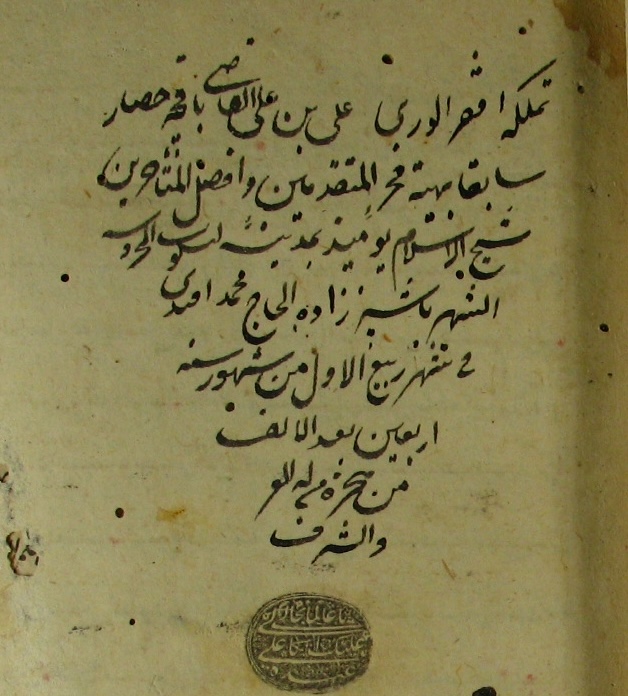 تملكه افقر الورى على بن على القاضى باقحه حصار
سابقا بهبة فخر المتقدمين وافضل المتأخرين
شيخ الاسلام يومئذ بمدينة اسكوب المحروسه
الشهير بشيخ زاده الحاج محمد افندى
فى شهر ربيع الاول من شهور سنه
اربعين بعد الالف
من هجرة من له العز
والشرف